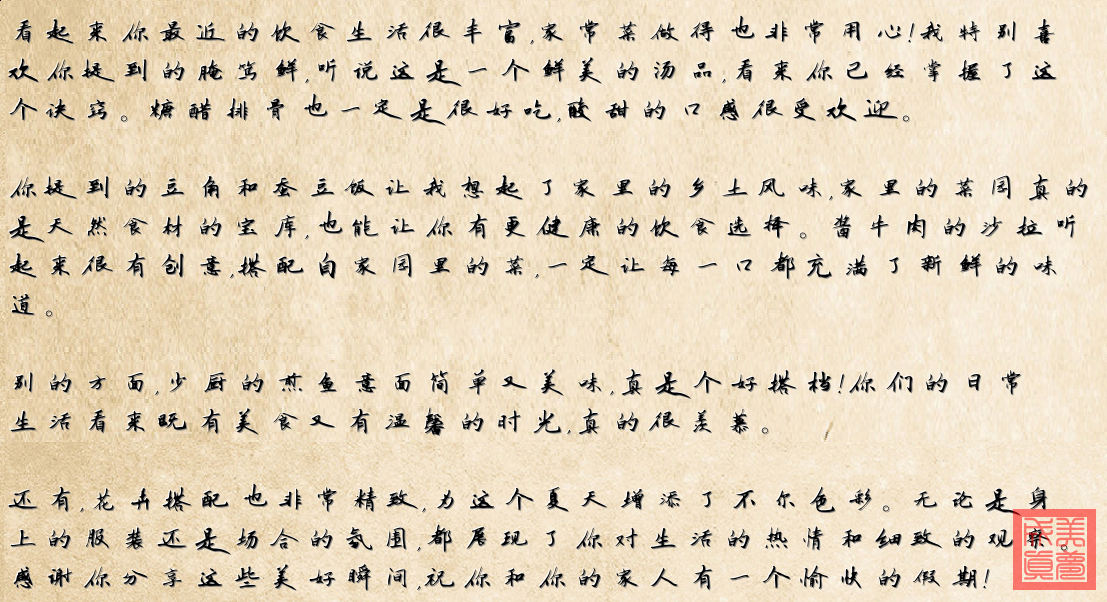 看起来你最近的饮食生活很丰富,家常菜做得也非常用心!我特别喜
欢你提到的腌笃鲜,听说这是一个鲜美的汤品,看来你已经掌握了这
个诀窍。糖醋排骨也一定是很好吃,酸甜的口感很受欢迎。
你提到的豆角和蚕豆饭让我想起了家里的乡土风味,家里的菜园真的
是天然食材的宝库,也能让你有更健康的饮食选择。酱牛肉的沙拉听
起来很有创意,搭配自家园里的菜,一定让每一口都充满了新鲜的味
道。
别的方面,少厨的煎鱼意面简单又美味,真是个好搭档!你们的日常
生活看来既有美食又有温馨的时光,真的很羡慕。
还有,花卉搭配也非常精致,为这个夏天增添了不尔色彩。无论是身
上的服装还是场合的氛围,都展现了你对生活的热情和细致的观察。
感谢你分享这些美好瞬间,祝你和你的家人有一个愉快的假期!
美梦成真